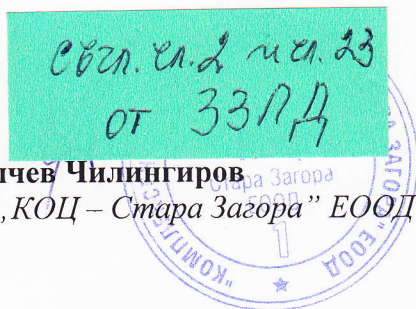 Съгл. чл. 2 и чл. 23
от ЗЗЛД
чев Чилингиров
„КОЦ – Стара Загора” ЕООД
Стара Загора
ЕООД
1
"КОМПЛЕ
ЗАГОРА" ЕООД